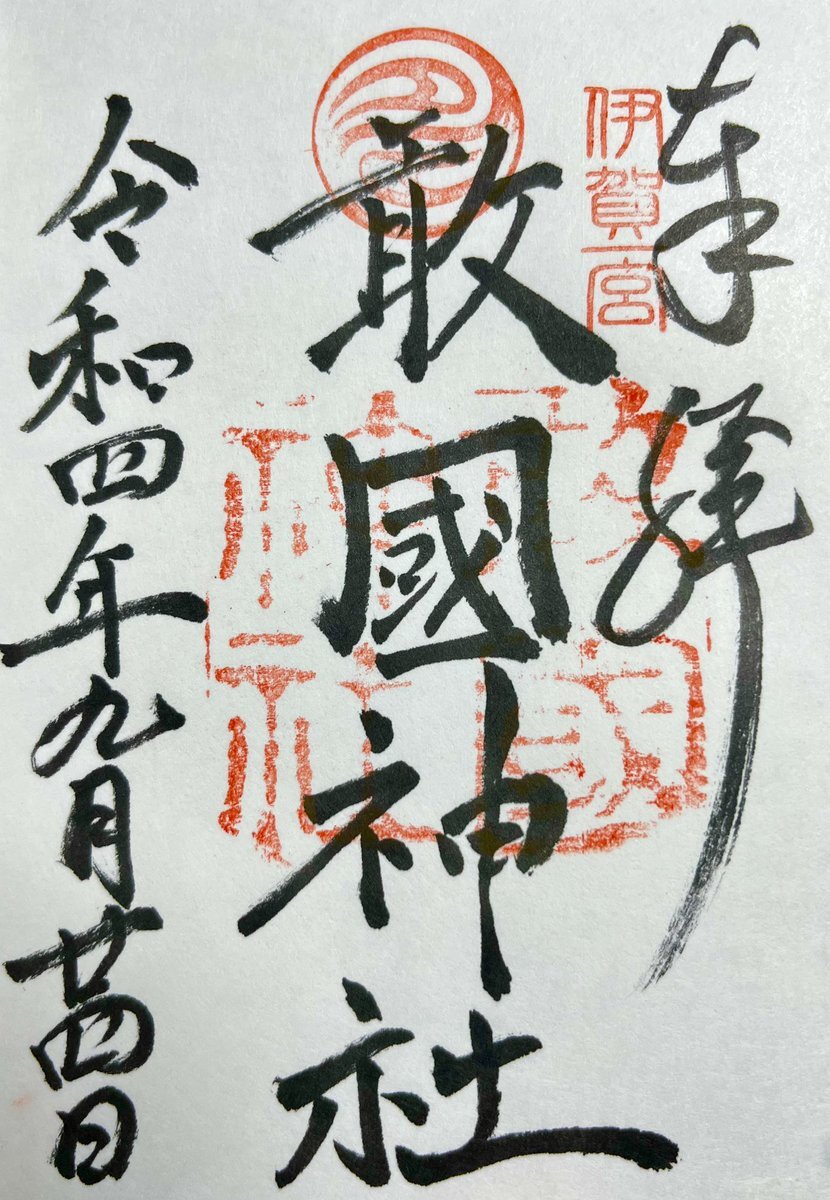 奉拝
伊賀一宮
敢國神社
敢國神社
令和四年九月廿四日